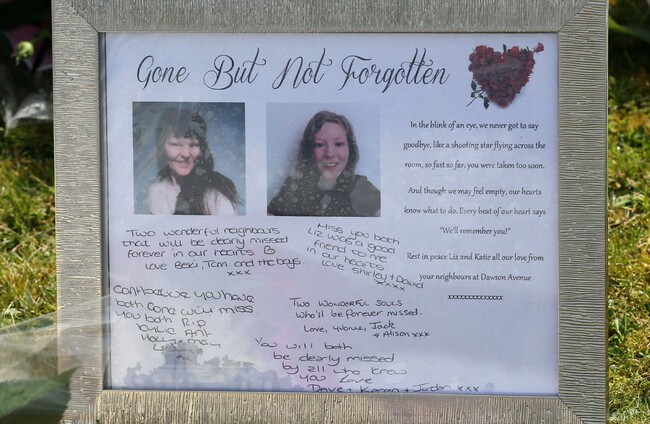 Gone But Not Forgotten
In the blink of an eye, we never got to say
goodbye, like a shooting star flying across the
room, so fast so far, you were taken too soon.
And though we may feel empty, our hearts
know what to do. Every beat of our heart says
"We'll remember you!"
Rest in peace Liz and Katie all our love from
your neighbours at Dawson Avenue
xxxxxxxxxxxxxx
Two wonderful neighbours
that will be dearly missed
forever in our hearts
love Beki, Tom and the boys.
xxx
Miss you both
Liz was a good
friend to me
in our hearts
love Shirley + David
xxxx
Cant believe you have
both Gone will miss
you both R.i.p
Kylie Ant
Two wonderful souls
Who'll be forever missed.
Love, Yvonne, Jack
& Alison xxx
You will both
be dearly missed
by all who knew
you Love
Dave + Karen + Jordan xxx